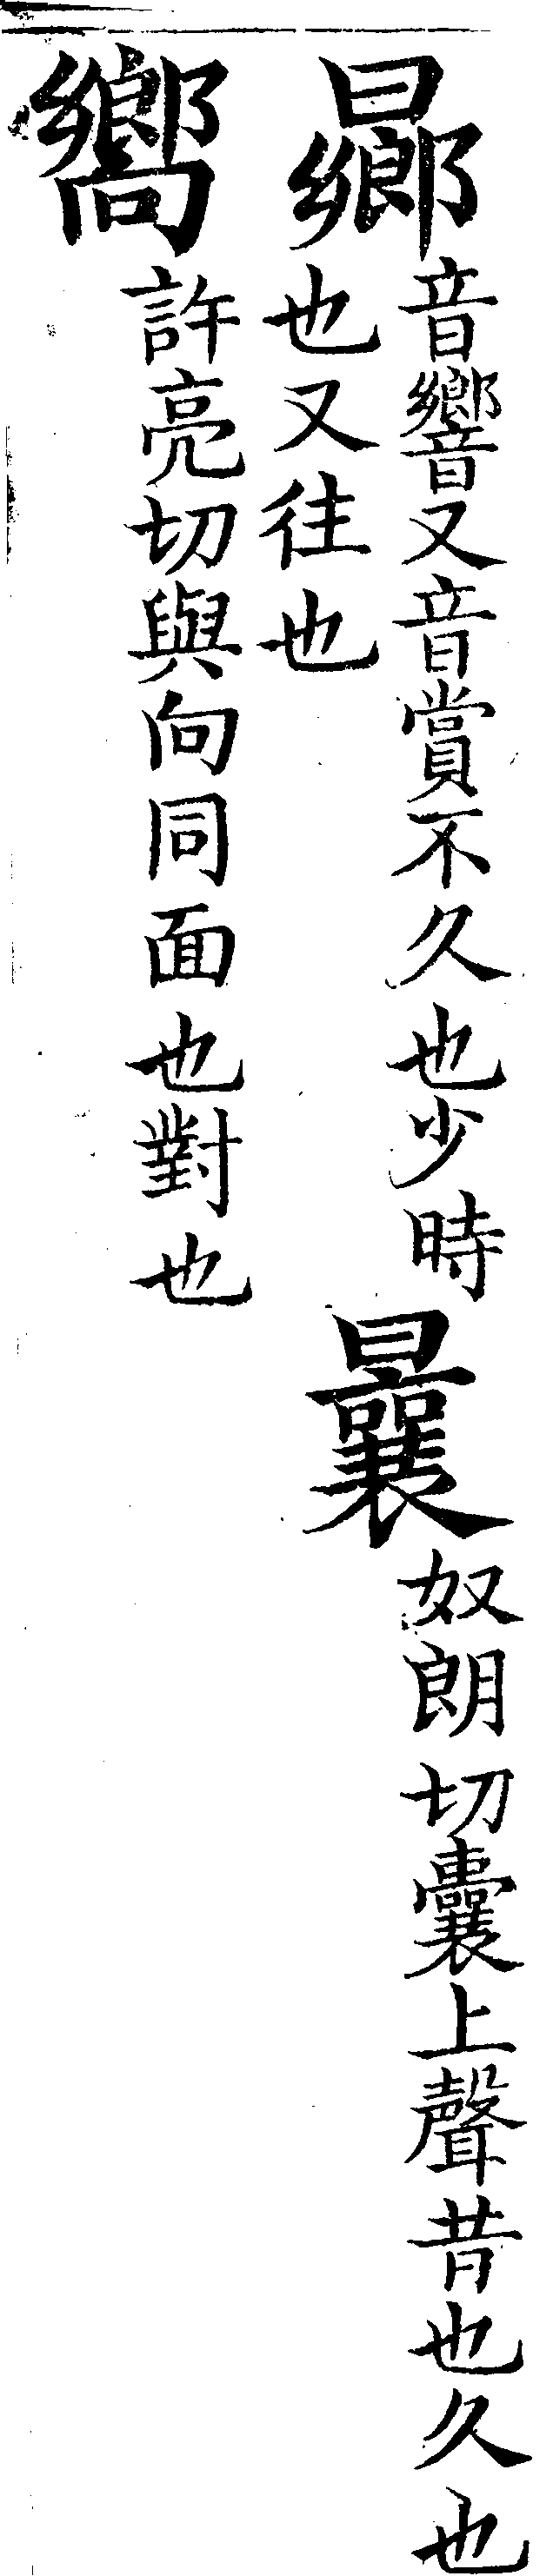 曏
音響又音賞不久也少時
也又往也
曩
奴朗切囊上聲昔也久也
嚮
許亮切與向同面也對也